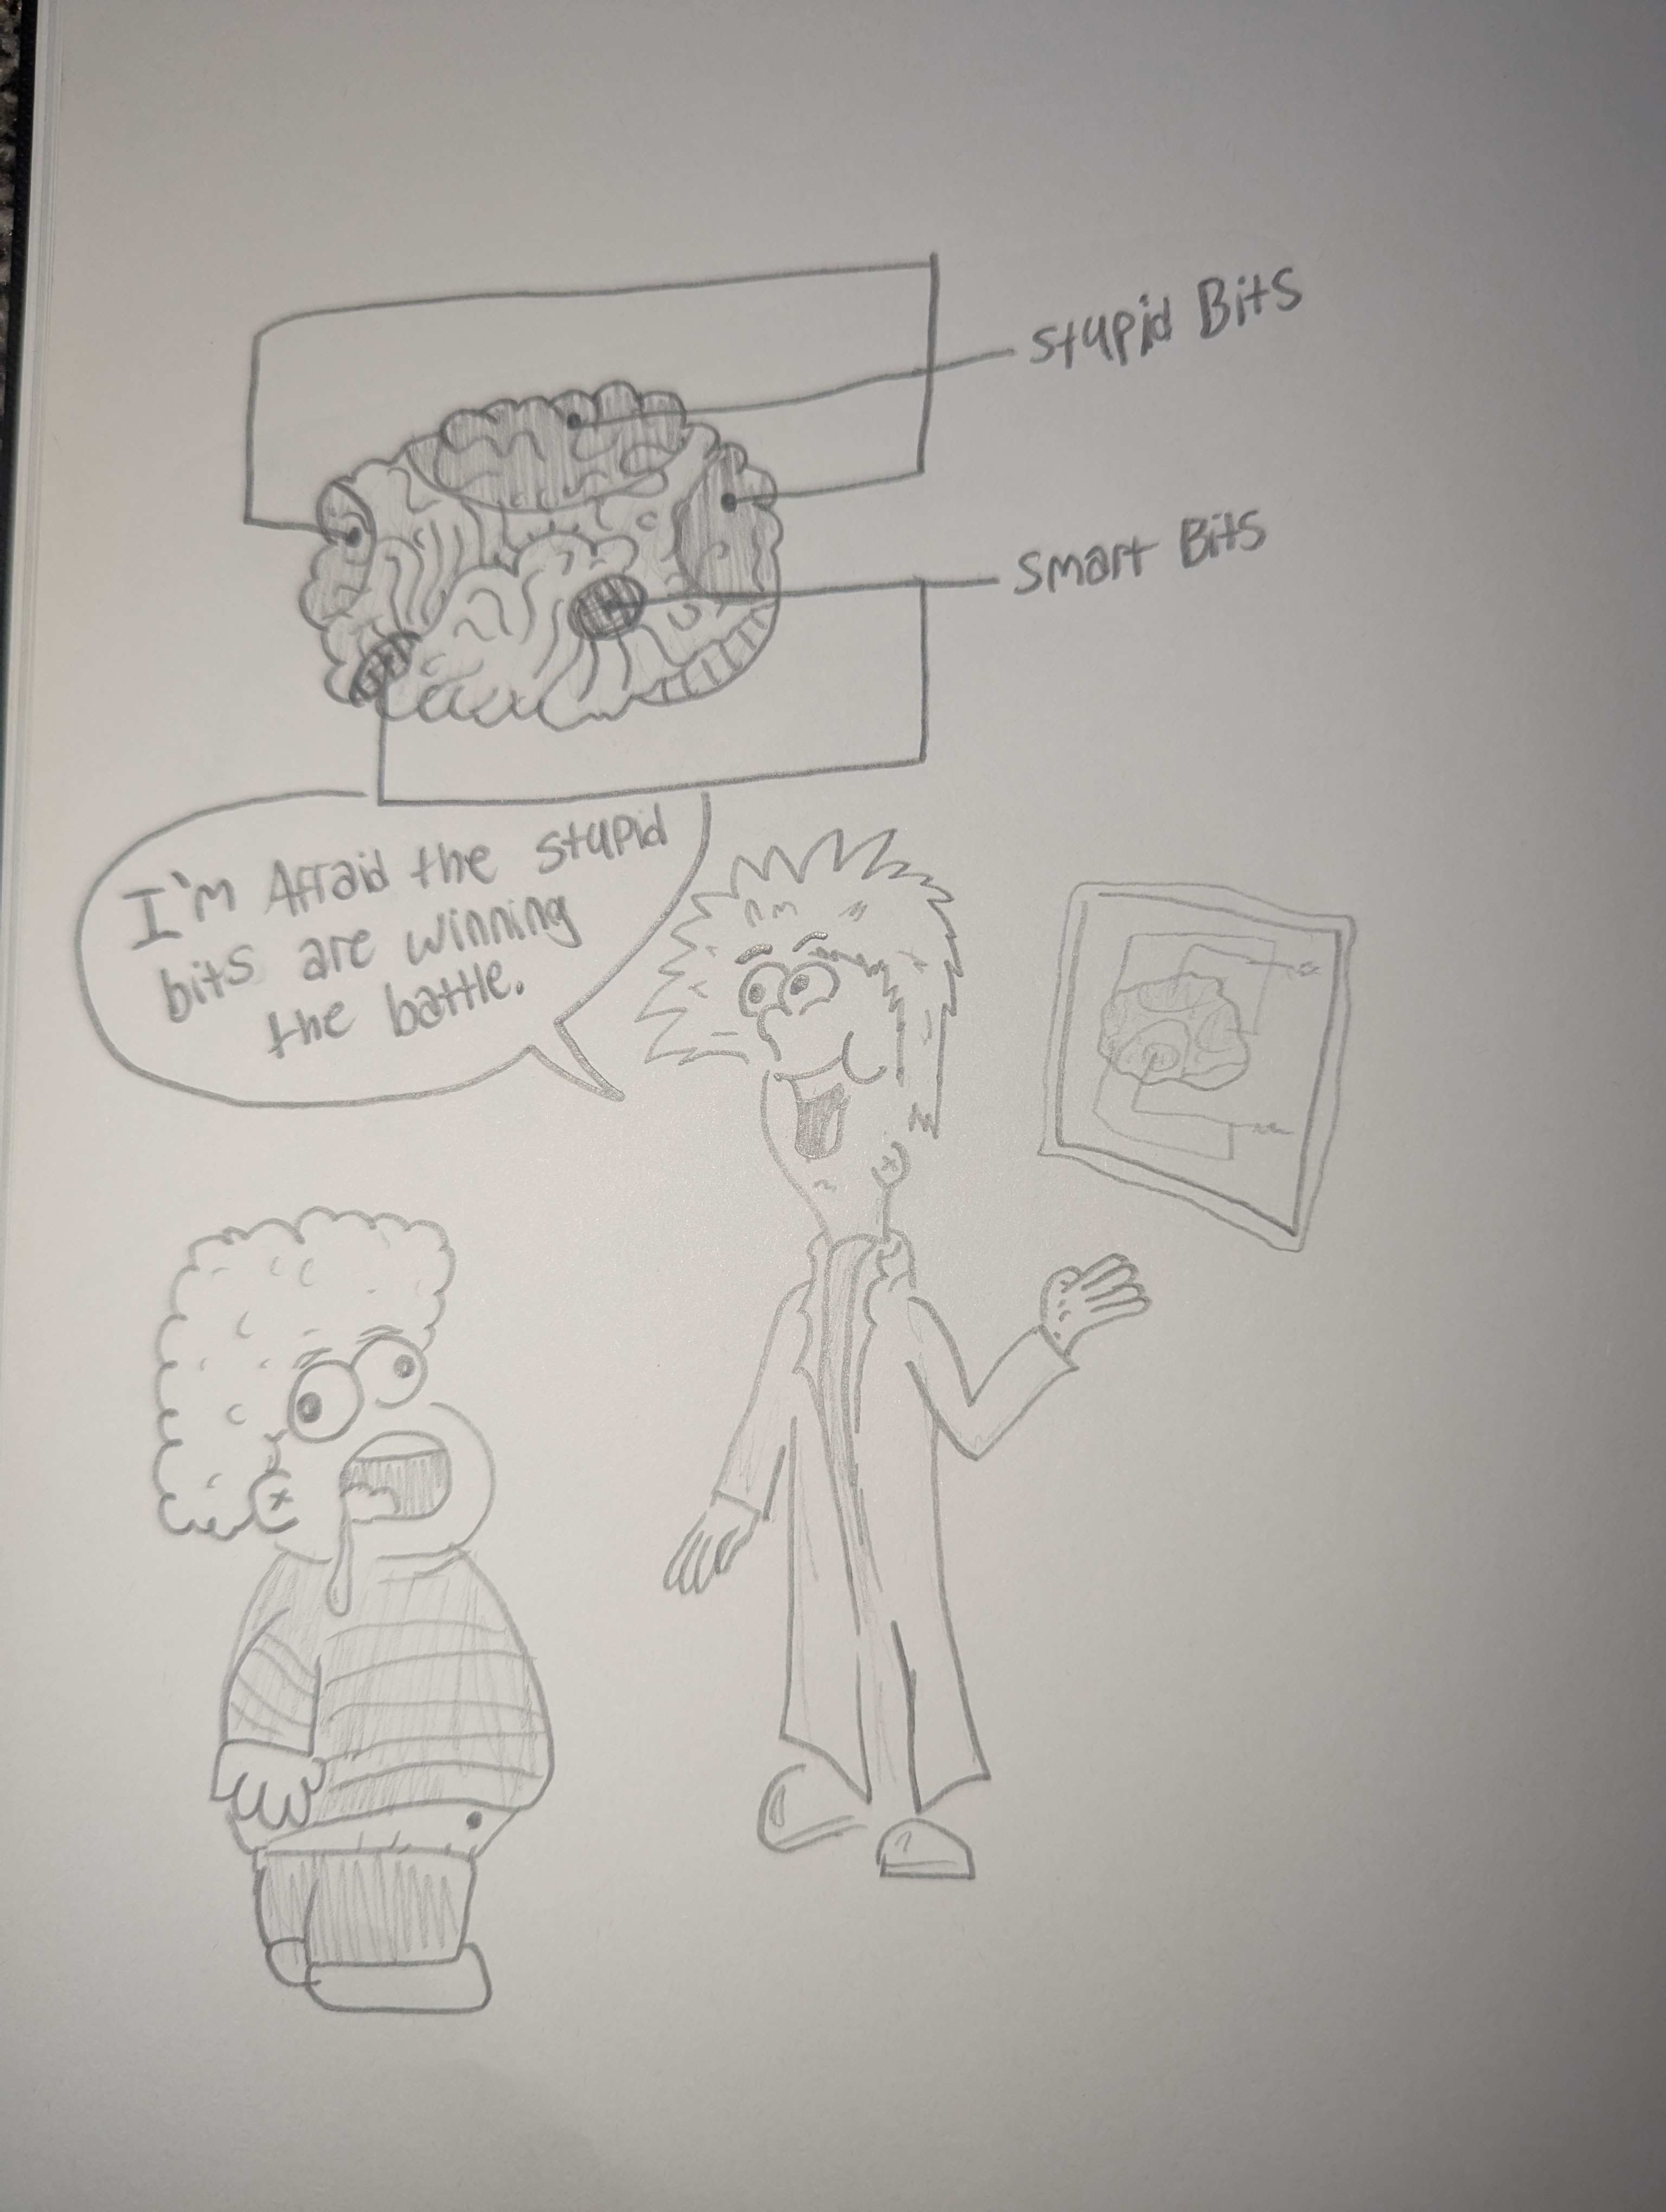 Stupid Bits
Smart Bits
I'm Afraid the stupid
bits are winning
the battle.